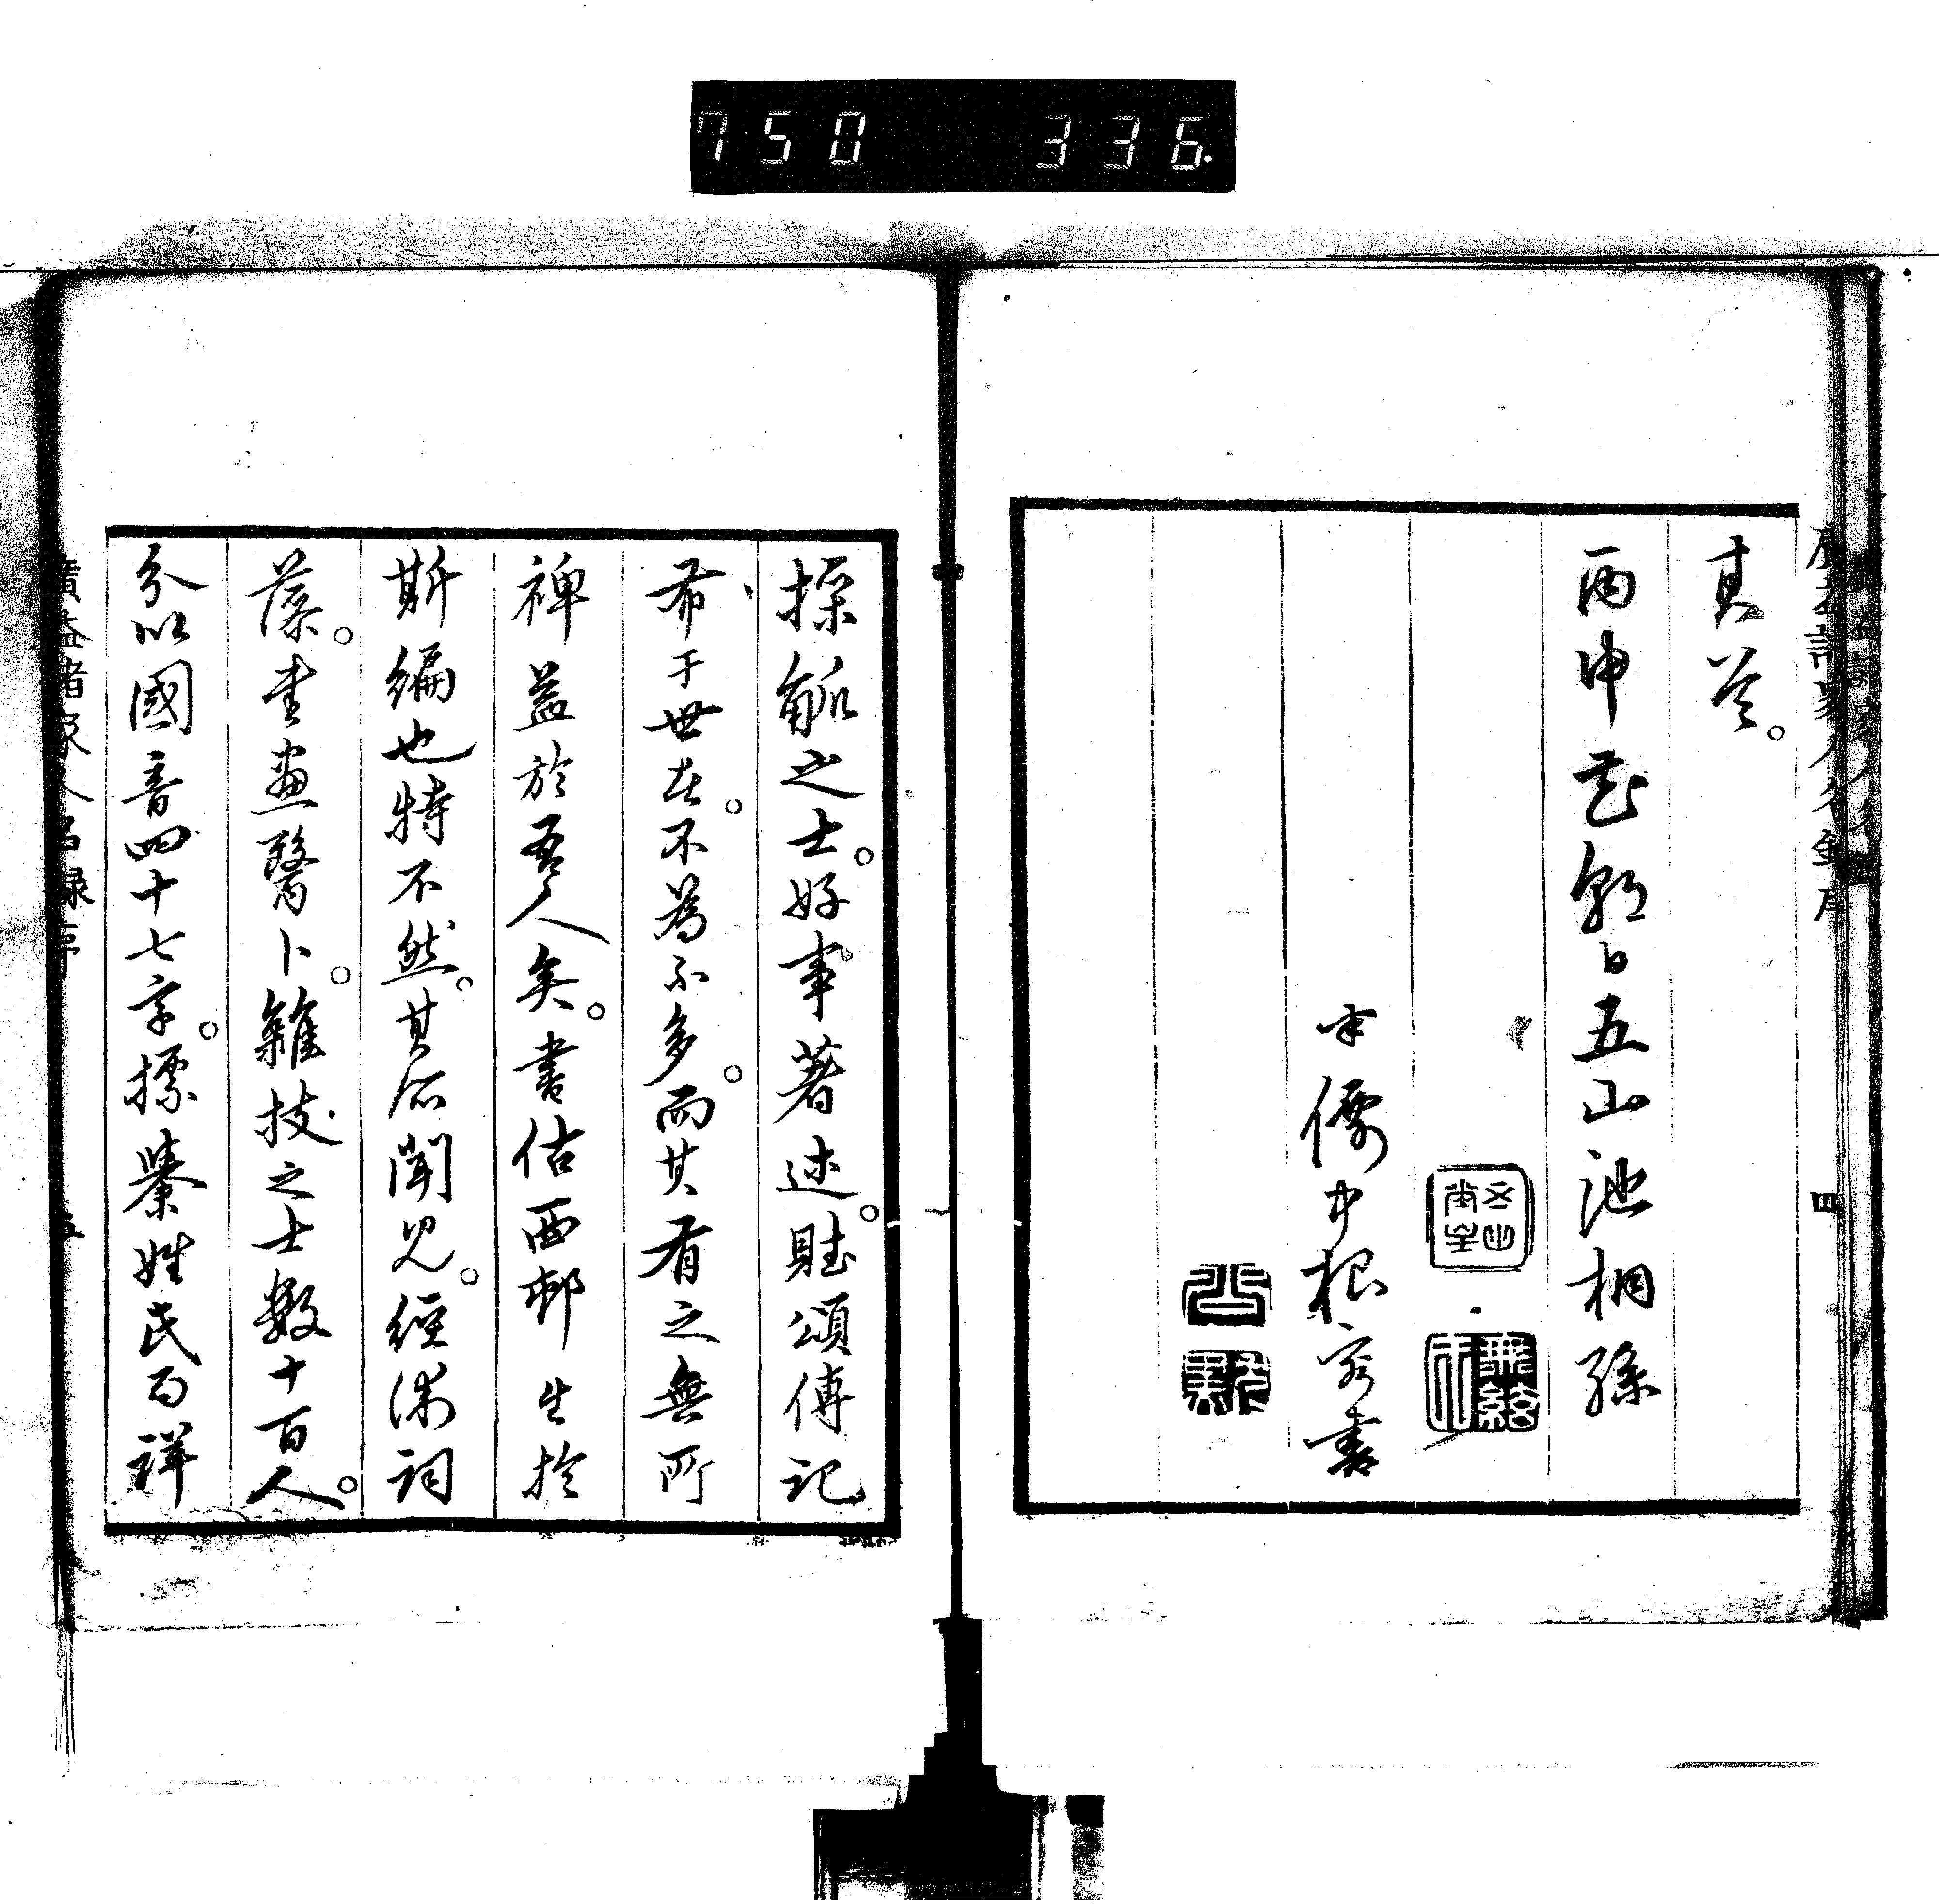 750 336
其首。
丙申花朝日五山池桐孫
半儒中根容書
操觚之士。好事著述。賦頌傳記
布于世者。不為不多。而其有之無所
裨益於吾人矣。書估西邨生於
斯編也特不然。其所聞見。經術詞
藻。書畫醫卜。雜技之士數十百人。
分以國音四十七字。標纂姓氏而詳
廣益諸家人名録序
四
五